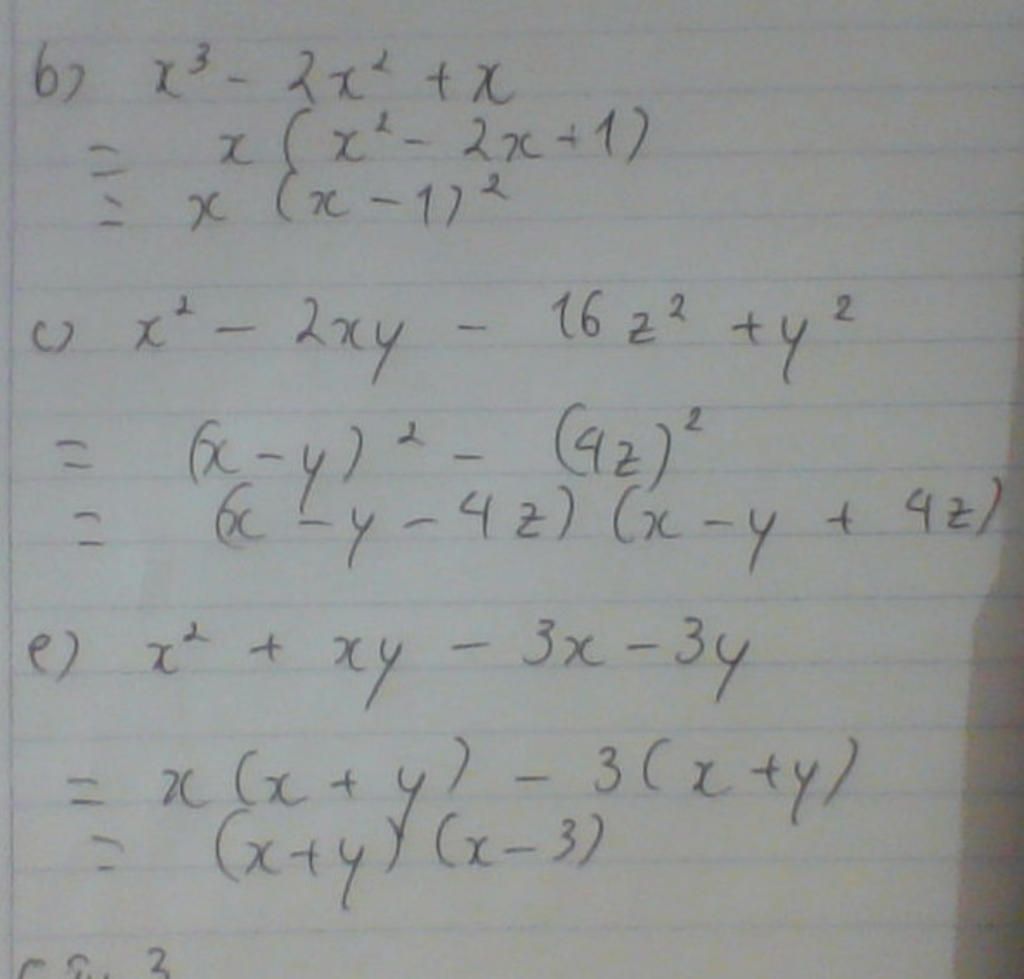 b) x³ - 2x² + x
= x (x² - 2x + 1)
= x (x - 1)²
c) x² - 2xy - 16z² + y²
= (x - y)² - (4z)²
= (x - y - 4z) (x - y + 4z)
e) x² + xy - 3x - 3y
= x (x + y) - 3 (x + y)
= (x + y) (x - 3)
3